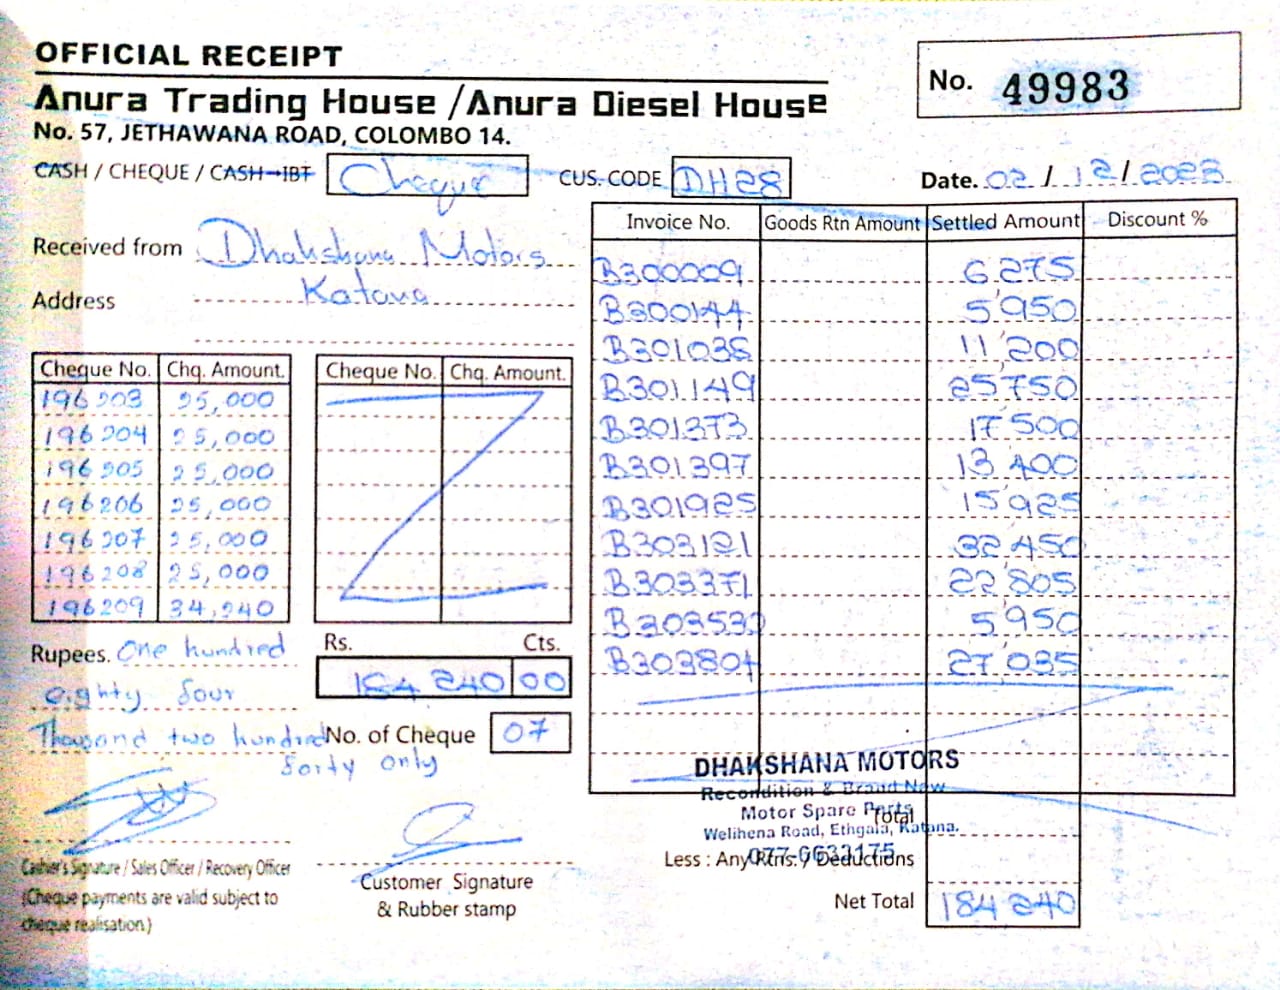 OFFICIAL RECEIPT
No. 49983
Anura Trading House / Anura Diesel House
No. 57, JETHAWANA ROAD, COLOMBO 14.
CASH / CHEQUE / CASH-IBT Cheque CUS. CODE DH28 Date. 02 / 12 / 2023
Received from Dhakshana Motors
Address Katana
Cheque No. Chq. Amount.
196203 25,000
196204 25,000
196205 25,000
196206 25,000
196207 25,000
196208 25,000
196209 34,240
Cheque No. Chq. Amount.
Rupees. One hundred
eighty four
Thousand two hundred
forty only
Rs. Cts.
184 240 00
No. of Cheque 07
Invoice No. Goods Rtn Amount Settled Amount Discount %
B300009 6275
B300144 5950
B301035 11 200
B301149 25750
B301373 17 500
B301397 13 400
B301925 15 925
B303121 32 450
B303371 22 805
B303532 5 950
B303804 27 035
DHAKSHANA MOTORS
Recondition & Brand New
Motor Spare Parts
Welihena Road, Ethgala, Katana.
077-6633175
Total
Less : Any Rtns. / Deductions
Net Total 184 240
Cashier's Signature / Sales Officer / Recovery Officer
(Cheque payments are valid subject to
cheque realisation)
Customer Signature
& Rubber stamp